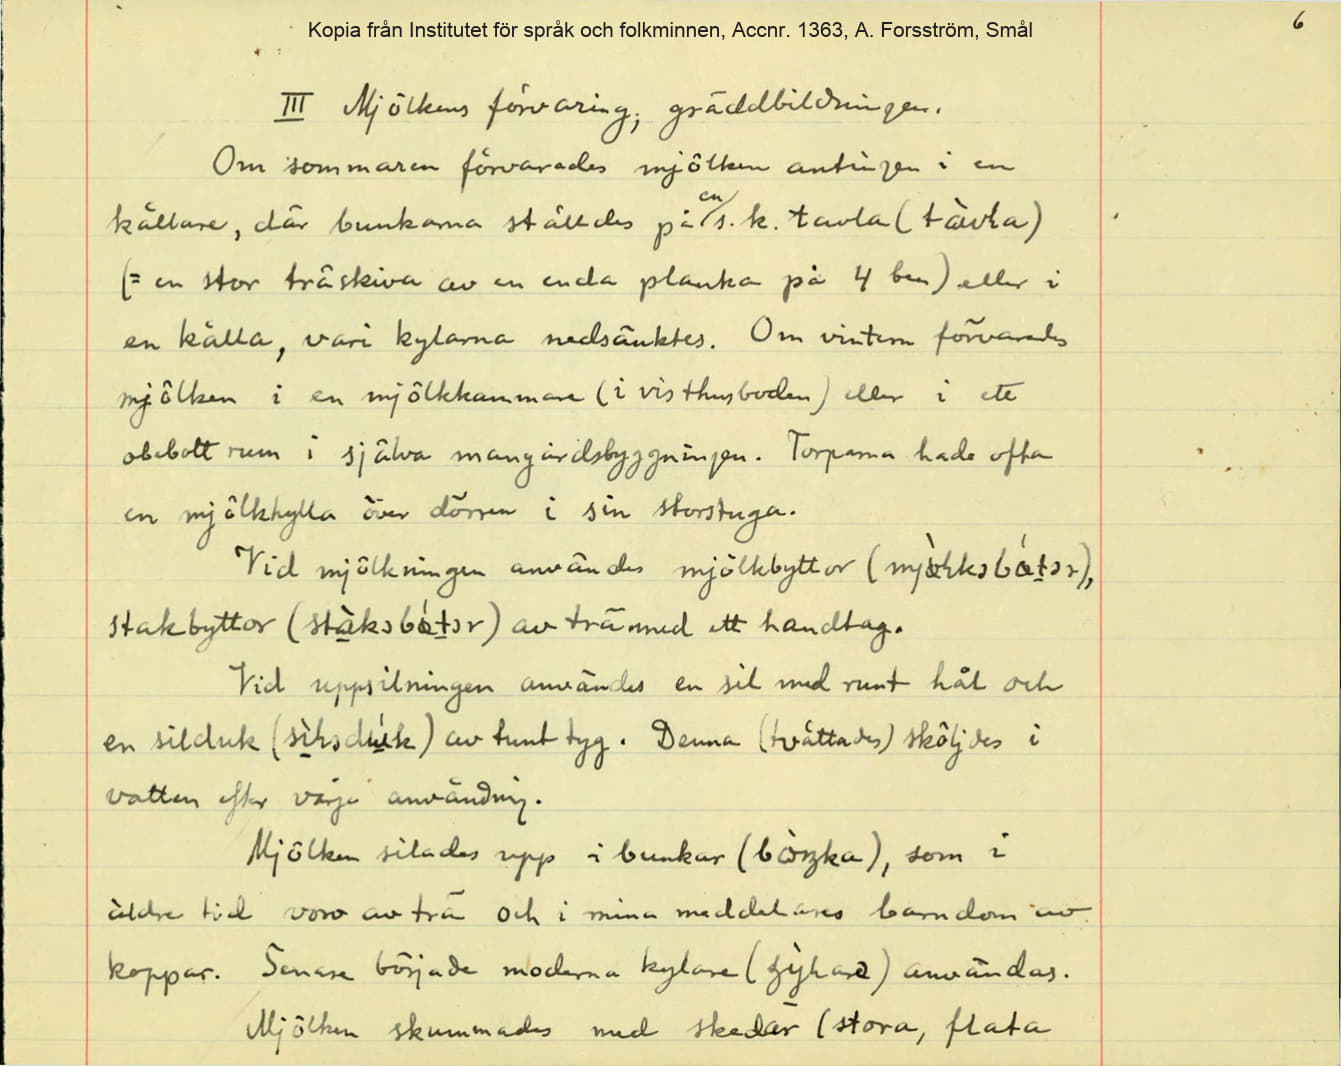 Kopia från Institutet för språk och folkminnen, Accnr. 1363, A. Forsström, Smål
6
III Mjölkens förvaring, gräddbildningen.
Om sommaren förvarades mjölken antingen i en
källare, där bunkarna ställdes på en s.k. tavla (tàvla)
(= en stor träskiva av en enda planka på 4 ben) eller i
en källa, vari kylarna nedsänktes. Om vintern förvarades
mjölken i en mjölkkammare (i visthusboden) eller i ett
obebott rum i själva mangårdsbyggningen. Torparna hade ofta
en mjölkhylla över dörren i sin storstuga.
Vid mjölkningen användes mjölkbyttor
stakbyttor av trä med ett handtag.
Vid uppsilningen användes en sil med runt hål och
en silduk av tunt tyg. Denna (tvättades) sköljdes i
vatten efter varje användnig.
Mjölken silades upp i bunkar, som i
äldre tid voro av trä och i mina meddelares barndom av
koppar. Senare började moderna kylare användas.
Mjölken skummades med skedar (stora, flata